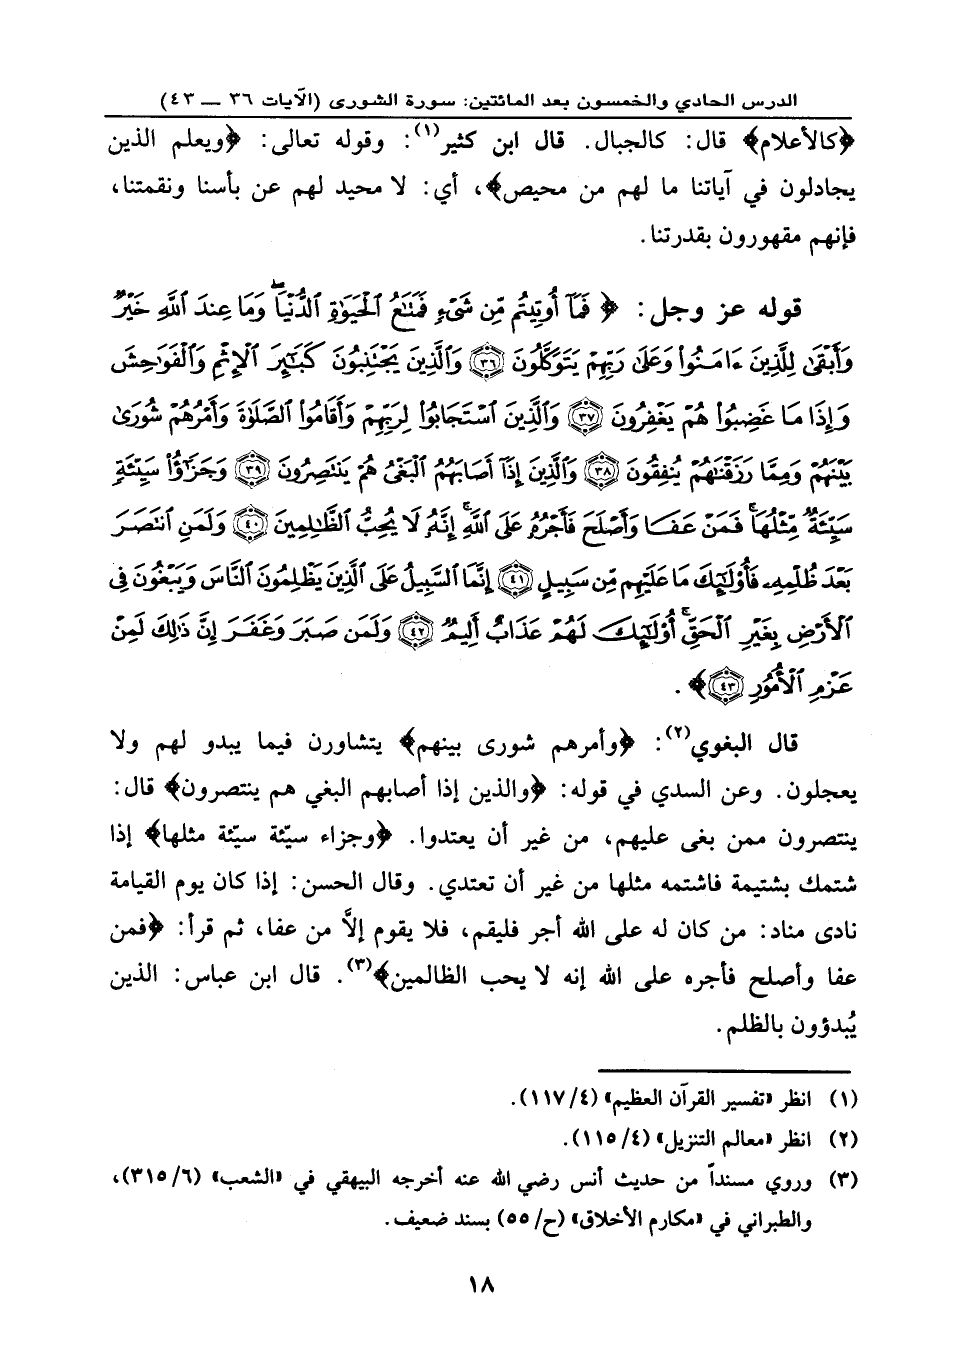 الدرس الحادي والخمسون بعد المائتين: سورة الشورى (الآيات ٣٦ — ٤٣)
﴿كالأعلام﴾ قال: كالجبال. قال ابن كثير(١): وقوله تعالى: ﴿ويعلم الذين
يجادلون في آياتنا ما لهم من محيص﴾، أي: لا محيد لهم عن بأسنا ونقمتنا،
فإنهم مقهورون بقدرتنا.
قوله عز وجل: ﴿فَمَآ أُوتِيتُم مِّن شَىْءٍ فَمَتَٰعُ ٱلْحَيَوٰةِ ٱلدُّنْيَا ۖ وَمَا عِندَ ٱللَّهِ خَيْرٌ
وَأَبْقَىٰ لِلَّذِينَ ءَامَنُوا۟ وَعَلَىٰ رَبِّهِمْ يَتَوَكَّلُونَ ۝٣٦ وَٱلَّذِينَ يَجْتَنِبُونَ كَبَٰٓئِرَ ٱلْإِثْمِ وَٱلْفَوَٰحِشَ
وَإِذَا مَا غَضِبُوا۟ هُمْ يَغْفِرُونَ ۝٣٧ وَٱلَّذِينَ ٱسْتَجَابُوا۟ لِرَبِّهِمْ وَأَقَامُوا۟ ٱلصَّلَوٰةَ وَأَمْرُهُمْ شُورَىٰ
بَيْنَهُمْ وَمِمَّا رَزَقْنَٰهُمْ يُنفِقُونَ ۝٣٨ وَٱلَّذِينَ إِذَآ أَصَابَهُمُ ٱلْبَغْىُ هُمْ يَنتَصِرُونَ ۝٣٩ وَجَزَٰٓؤُا۟ سَيِّئَةٍ
سَيِّئَةٌ مِّثْلُهَا ۖ فَمَنْ عَفَا وَأَصْلَحَ فَأَجْرُهُۥ عَلَى ٱللَّهِ ۚ إِنَّهُۥ لَا يُحِبُّ ٱلظَّٰلِمِينَ ۝٤٠ وَلَمَنِ ٱنتَصَرَ
بَعْدَ ظُلْمِهِۦ فَأُو۟لَٰٓئِكَ مَا عَلَيْهِم مِّن سَبِيلٍ ۝٤١ إِنَّمَا ٱلسَّبِيلُ عَلَى ٱلَّذِينَ يَظْلِمُونَ ٱلنَّاسَ وَيَبْغُونَ فِى
ٱلْأَرْضِ بِغَيْرِ ٱلْحَقِّ ۚ أُو۟لَٰٓئِكَ لَهُمْ عَذَابٌ أَلِيمٌ ۝٤٢ وَلَمَن صَبَرَ وَغَفَرَ إِنَّ ذَٰلِكَ لَمِنْ
عَزْمِ ٱلْأُمُورِ ۝٤٣﴾.
قال البغوي(٢): ﴿وأمرهم شورى بينهم﴾ يتشاورن فيما يبدو لهم ولا
يعجلون. وعن السدي في قوله: ﴿والذين إذا أصابهم البغي هم ينتصرون﴾ قال:
ينتصرون ممن بغى عليهم، من غير أن يعتدوا. ﴿وجزاء سيّئة سيّئة مثلها﴾ إذا
شتمك بشتيمة فاشتمه مثلها من غير أن تعتدي. وقال الحسن: إذا كان يوم القيامة
نادى مناد: من كان له على الله أجر فليقم، فلا يقوم إلاَّ من عفا، ثم قرأ: ﴿فمن
عفا وأصلح فأجره على الله إنه لا يحب الظالمين﴾(٣). قال ابن عباس: الذين
يُبدؤون بالظلم.
(١) انظر «تفسير القرآن العظيم» (٤/١١٧).
(٢) انظر «معالم التنزيل» (٤/١١٥).
(٣) وروي مسنداً من حديث أنس رضي الله عنه أخرجه البيهقي في «الشعب» (٦/٣١٥)،
والطبراني في «مكارم الأخلاق» (ح/٥٥) بسند ضعيف.
١٨